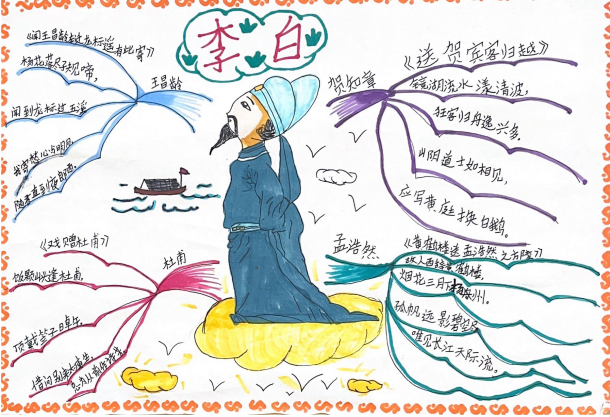 李白
《闻王昌龄左迁龙标遥有此寄》
杨花落尽子规啼，
闻到龙标过五溪
我寄愁心与明月
随君直到夜郎西。
王昌龄
贺知章
《送贺宾客归越》
镜湖流水漾清波，
狂客归舟逸兴多。
山阴道士如相见，
应写黄庭换白鹅。
《戏赠杜甫》
饭颗山头逢杜甫，
顶戴笠子日卓午。
借问别来太瘦生
总为从前作诗苦
杜甫
孟浩然
《黄鹤楼送孟浩然之广陵》
故人西辞黄鹤楼，
烟花三月下扬州。
孤帆远影碧空尽
唯见长江天际流。